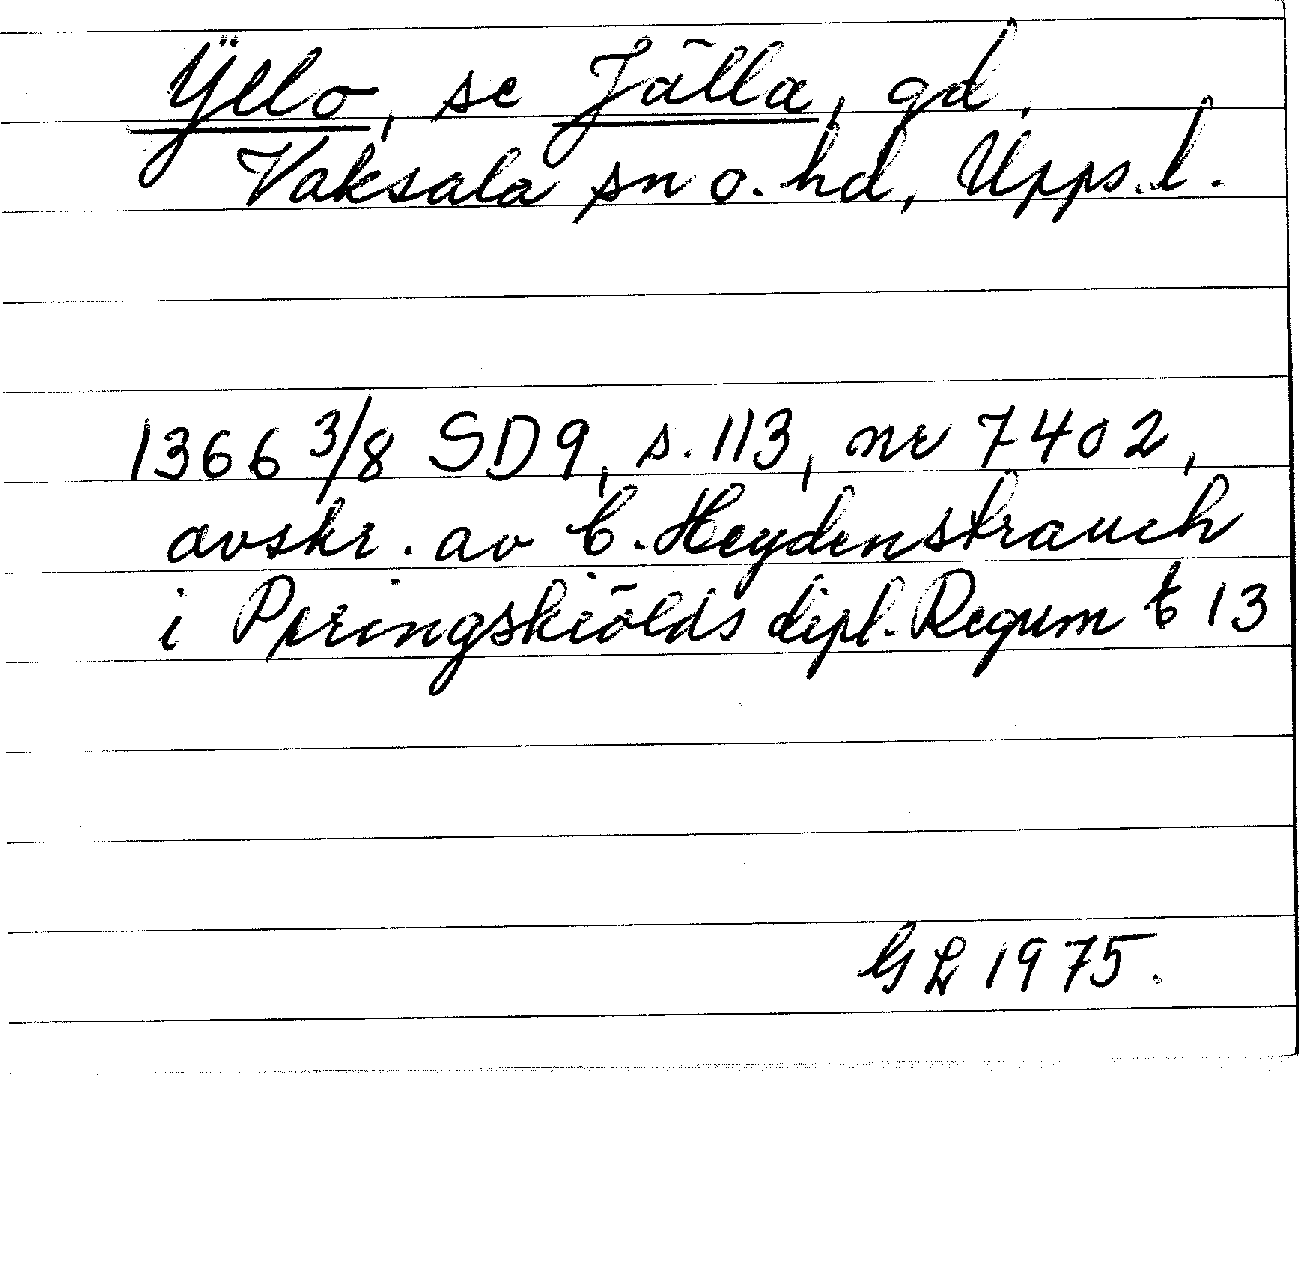 Ÿllo, se Jälla, gd.
Vaksala sn o. hd, Upps. l.
1366 3/8 SD9, s. 113, nr 7402,
avskr. av C. Heydenstrauch
i Peringskiölds dipl. Regum t 13
GL 1975.